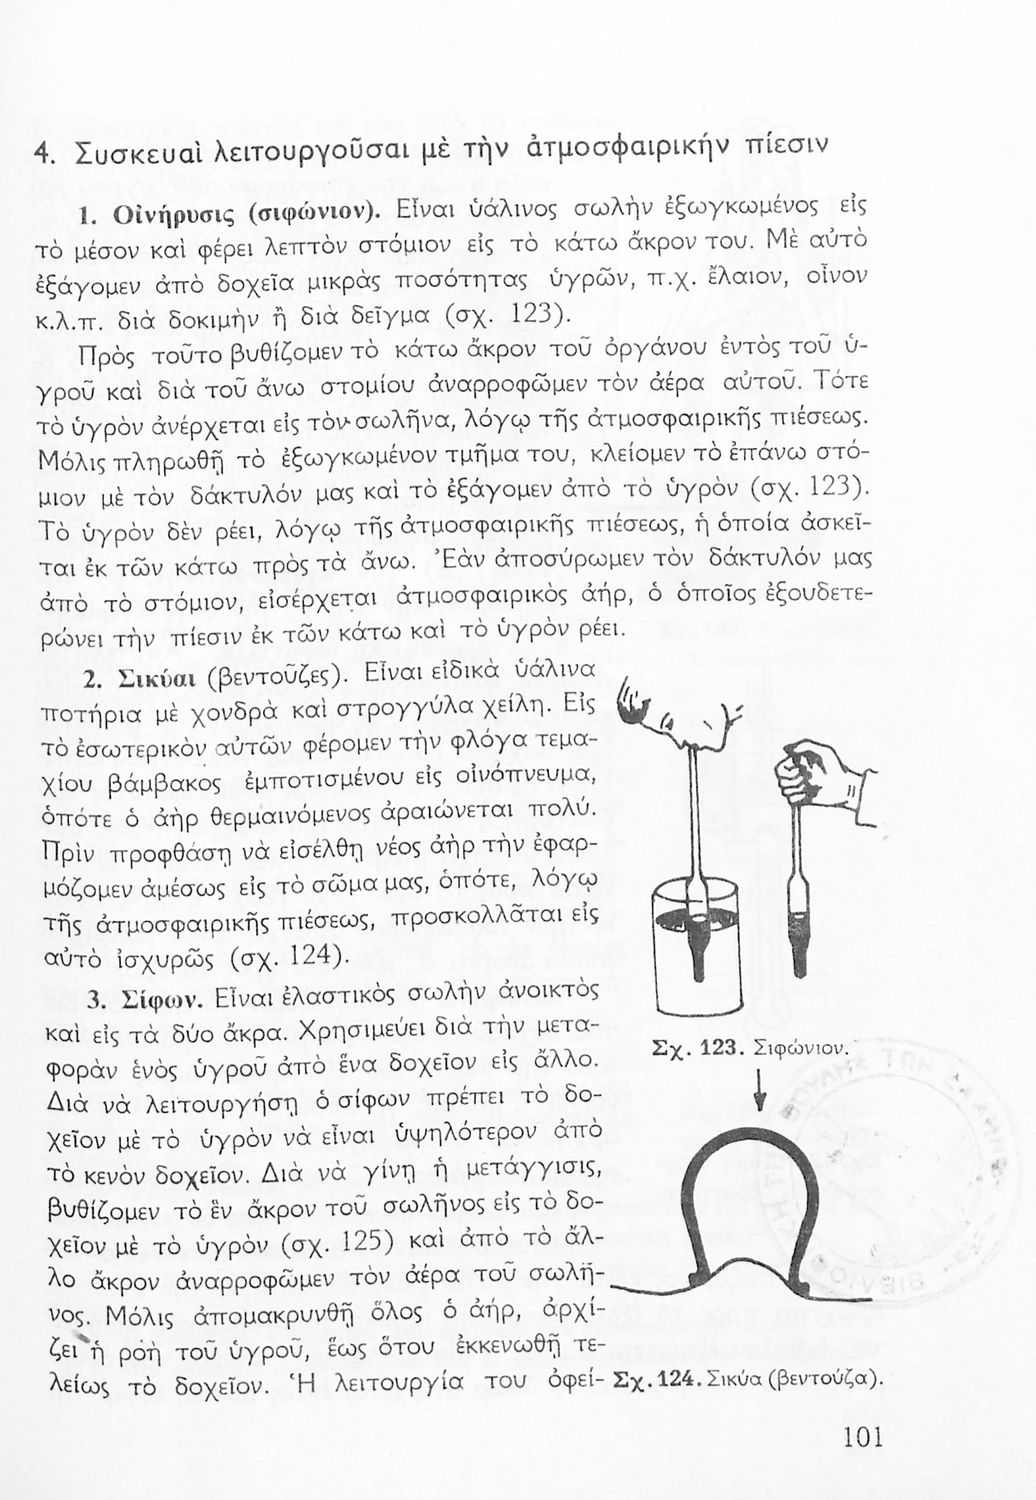 4. Συσκευαὶ λειτουργοῦσαι μὲ τὴν ἀτμοσφαιρικήν πίεσιν
1. Οἰνήρυσις (σιφώνιον). Εἶναι ὑάλινος σωλὴν ἐξωγκωμένος εἰς
τὸ μέσον καὶ φέρει λεπτὸν στόμιον εἰς τὸ κάτω ἄκρον του. Μὲ αὐτὸ
ἐξάγομεν ἀπὸ δοχεῖα μικρὰς ποσότητας ὑγρῶν, π.χ. ἔλαιον, οἶνον
κ.λ.π. διὰ δοκιμὴν ἢ διὰ δεῖγμα (σχ. 123).
Πρὸς τοῦτο βυθίζομεν τὸ κάτω ἄκρον τοῦ ὀργάνου ἐντὸς τοῦ ὑ-
γροῦ καὶ διὰ τοῦ ἄνω στομίου ἀναρροφῶμεν τὸν ἀέρα αὐτοῦ. Τότε
τὸ ὑγρὸν ἀνέρχεται εἰς τὸν σωλῆνα, λόγῳ τῆς ἀτμοσφαιρικῆς πιέσεως.
Μόλις πληρωθῇ τὸ ἐξωγκωμένον τμῆμα του, κλείομεν τὸ ἐπάνω στό-
μιον μὲ τὸν δάκτυλόν μας καὶ τὸ ἐξάγομεν ἀπὸ τὸ ὑγρὸν (σχ. 123).
Τὸ ὑγρὸν δὲν ρέει, λόγῳ τῆς ἀτμοσφαιρικῆς πιέσεως, ἡ ὁποία ἀσκεῖ-
ται ἐκ τῶν κάτω πρὸς τὰ ἄνω. Ἐὰν ἀποσύρωμεν τὸν δάκτυλόν μας
ἀπὸ τὸ στόμιον, εἰσέρχεται ἀτμοσφαιρικὸς ἀήρ, ὁ ὁποῖος ἐξουδετε-
ρώνει τὴν πίεσιν ἐκ τῶν κάτω καὶ τὸ ὑγρὸν ρέει.
2. Σικύαι (βεντοῦζες). Εἶναι εἰδικὰ ὑάλινα
ποτήρια μὲ χονδρὰ καὶ στρογγύλα χείλη. Εἰς
τὸ ἐσωτερικὸν αὐτῶν φέρομεν τὴν φλόγα τεμα-
χίου βάμβακος ἐμποτισμένου εἰς οἰνόπνευμα,
ὁπότε ὁ ἀὴρ θερμαινόμενος ἀραιώνεται πολύ.
Πρὶν προφθάσῃ νὰ εἰσέλθῃ νέος ἀὴρ τὴν ἐφαρ-
μόζομεν ἀμέσως εἰς τὸ σῶμα μας, ὁπότε, λόγῳ
τῆς ἀτμοσφαιρικῆς πιέσεως, προσκολλᾶται εἰς
αὐτὸ ἰσχυρῶς (σχ. 124).
3. Σίφων. Εἶναι ἐλαστικὸς σωλὴν ἀνοικτὸς
καὶ εἰς τὰ δύο ἄκρα. Χρησιμεύει διὰ τὴν μετα-
φορὰν ἑνὸς ὑγροῦ ἀπὸ ἕνα δοχεῖον εἰς ἄλλο.
Διὰ νὰ λειτουργήσῃ ὁ σίφων πρέπει τὸ δο-
χεῖον μὲ τὸ ὑγρὸν νὰ εἶναι ὑψηλότερον ἀπὸ
τὸ κενὸν δοχεῖον. Διὰ νὰ γίνῃ ἡ μετάγγισις,
βυθίζομεν τὸ ἓν ἄκρον τοῦ σωλῆνος εἰς τὸ δο-
χεῖον μὲ τὸ ὑγρὸν (σχ. 125) καὶ ἀπὸ τὸ ἄλ-
λο ἄκρον ἀναρροφῶμεν τὸν ἀέρα τοῦ σωλῆ-
νος. Μόλις ἀπομακρυνθῇ ὅλος ὁ ἀήρ, ἀρχί-
ζει ἡ ροὴ τοῦ ὑγροῦ, ἕως ὅτου ἐκκενωθῇ τε-
λείως τὸ δοχεῖον. Ἡ λειτουργία του ὀφεί-
Σχ. 123. Σιφώνιον.
Σχ. 124. Σικύα (βεντούζα).
101